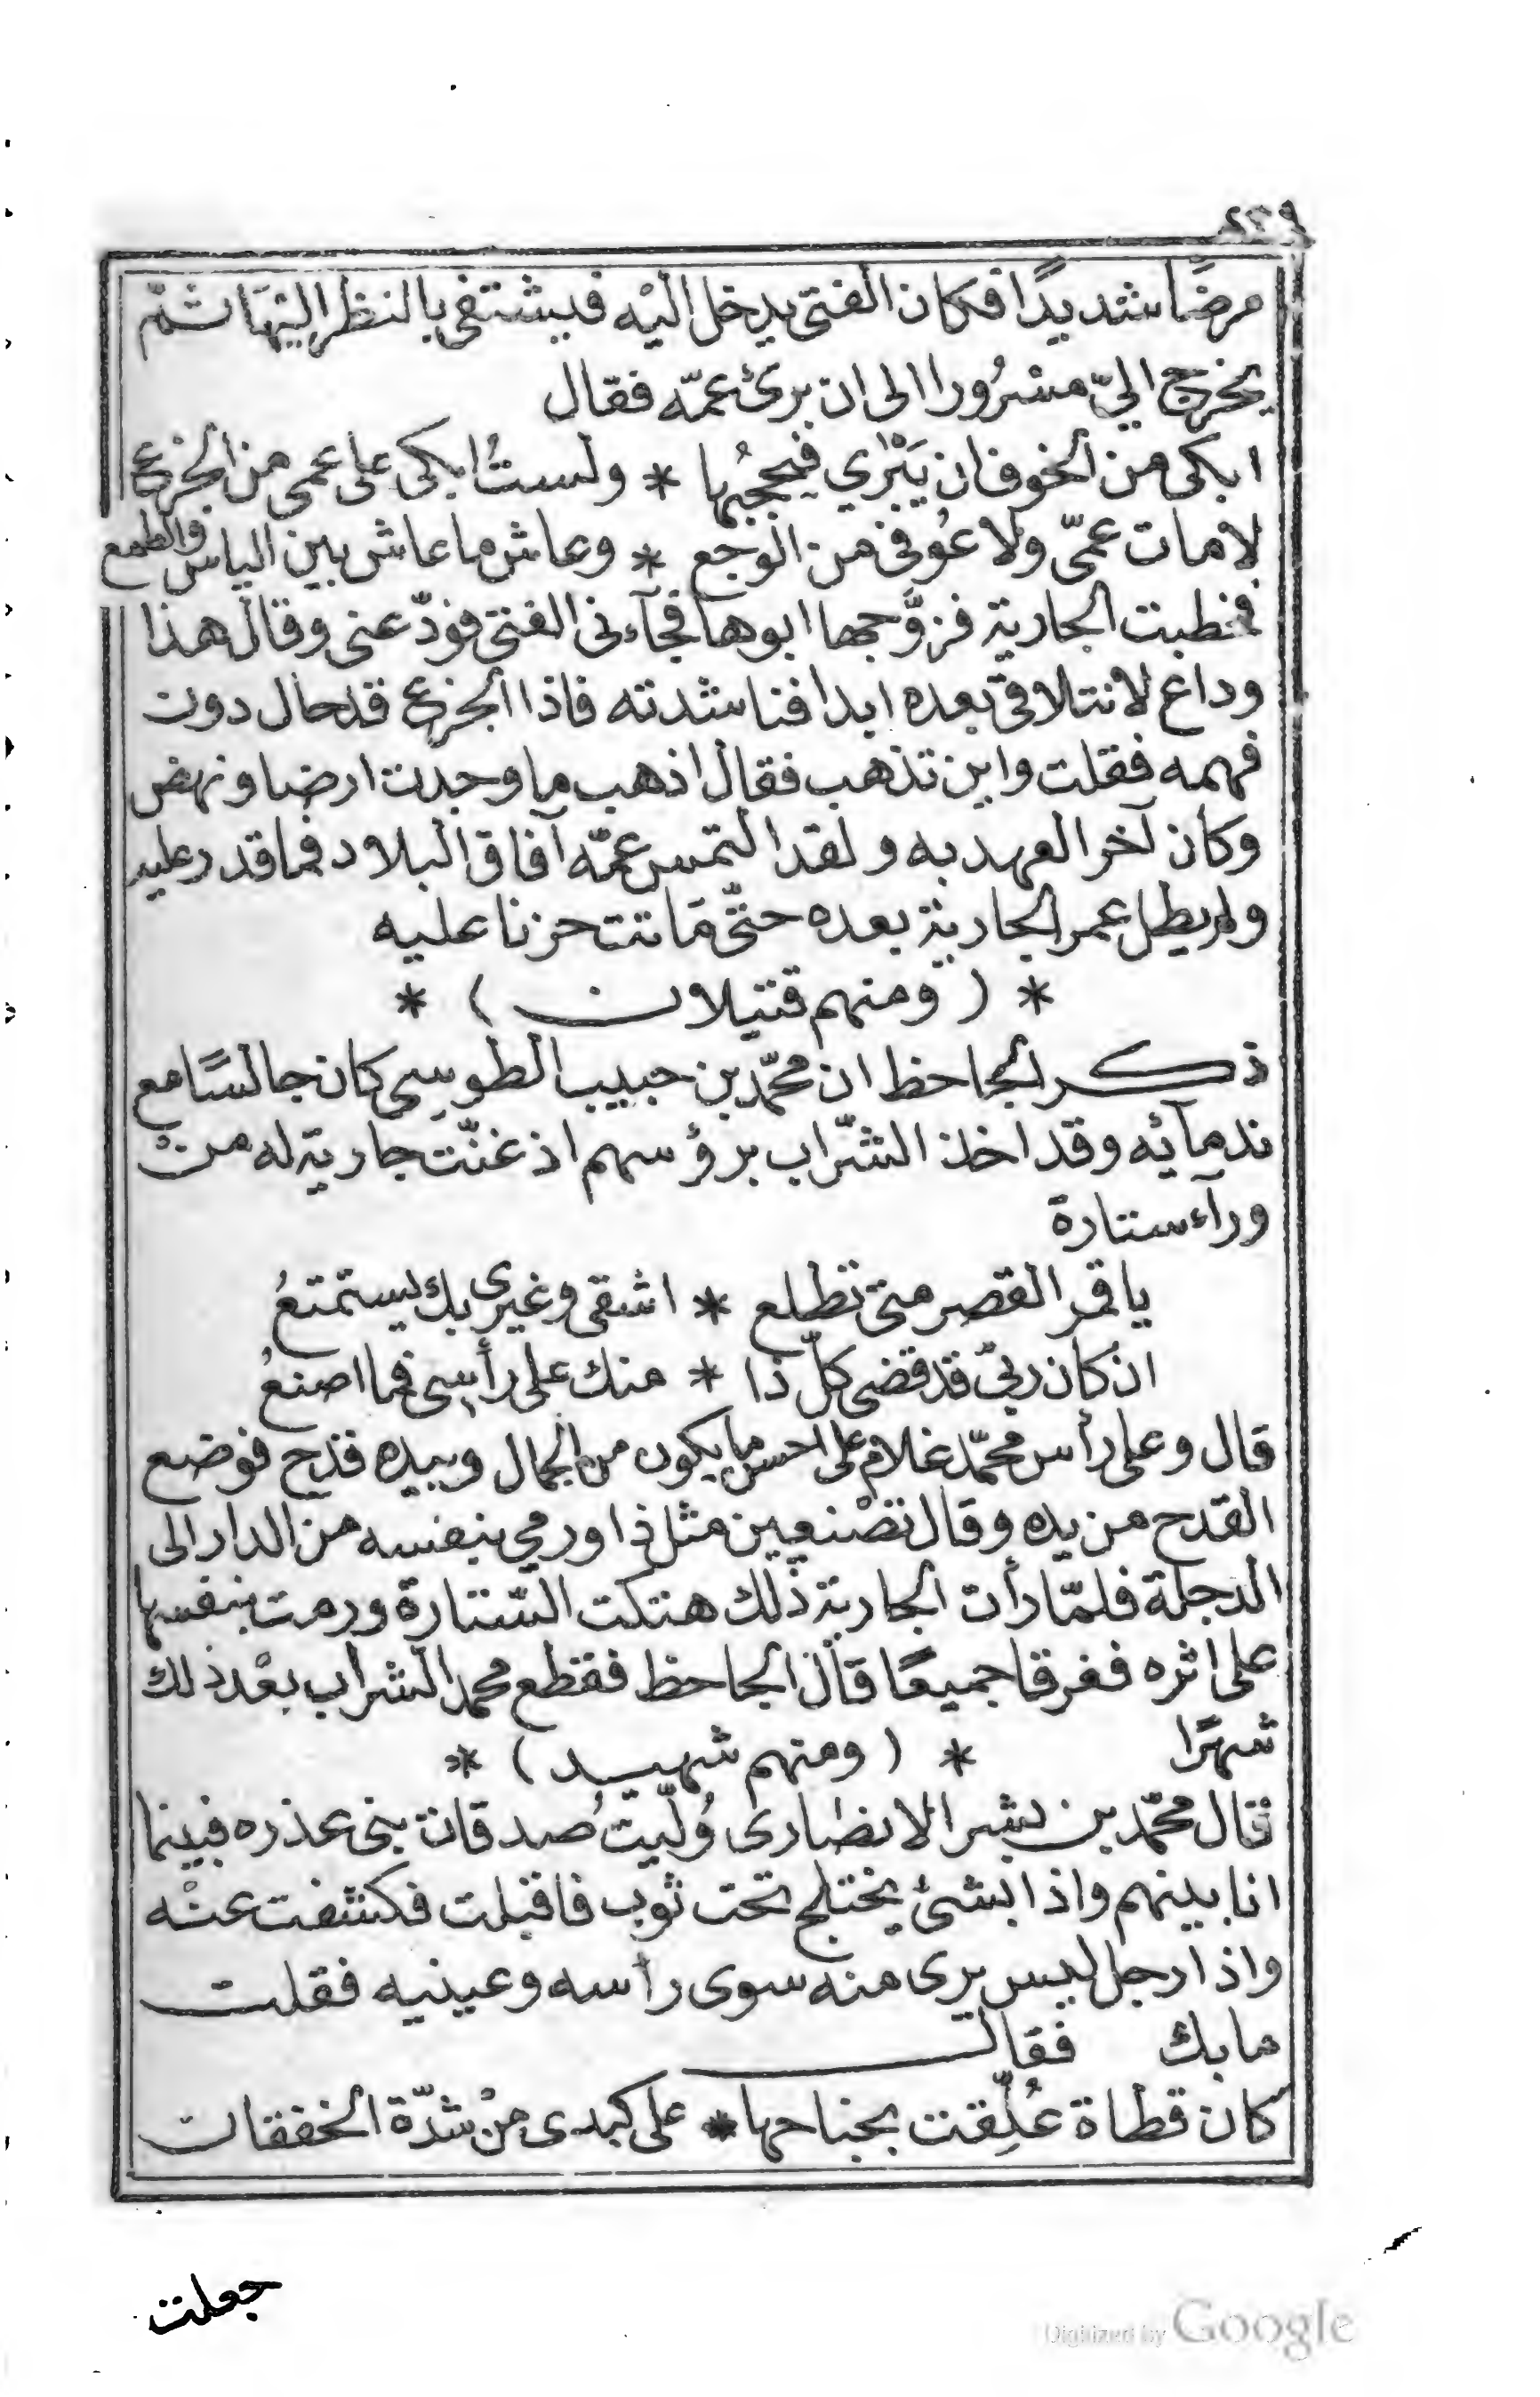 ٤٢٩
مرضًا شديدًا فكان الفتى يدخل اليه فيشتفى بالنظر اليهَا ثمّ
يخرج اليّ مسْرُورا الى ان برئ عمّه فقال
ابكى من الخوف ان يَبْرِي فيحجُبها * ولستُ ابكى على عمى من الجزع
لا مات عمّى ولا عُوفى من الوجع * وعاش ما عاش بين الياس والطمع
فخطبت الجارية فزوَّجها ابوها فجآءنى الفتى فودّعنى وقال هذا
وداع لا نتلاقى بعده ابدا فناشدته فاذا الجزع قد حال دون
فهمه فقلت واين تذهب فقال اذهب ما وجدت ارضا ونهض
وكان آخر العهد به ولقد التمس عمّه آفاق البلاد فما قدر عليه
ولم يطل عمر الجارية بعده حتّى مَاتت حزنا عليه
* ( ومنهم قتيلان ) *
ذكر الجاحظ ان محمّد بن حبيب الطوسى كان جالسًا مع
ندمآئه وقد اخذ الشّراب برؤسهم اذ غنّت جارية له من
ورآء ستارة
ياقمر القصر متى تطلع * اشقى وغيرى بك يستمتعُ
ان كان ربّى قد قضى كلّ ذا * منك على رأسى فما اصنعُ
قال وعلى رأس محمّد غلام على احسن ما يكون من الجمال وبيده قدح فوضع
القدح من يده وقال تصْنعين مثل ذا ورمى بنفسه من الدار الى
الدجلة فلمّا رأت الجارية ذلك هتكت السّتارة ورمت بنفسها
على اثره فغرقا جميعًا قال الجاحظ فقطع محمد الشراب بعْد ذلك
شهرًا * ( ومنهم شهيد ) *
قال محمّد بن بشر الانصارى وُلّيت صُدقات بنى عذره فبينما
انا بينهم واذا بشئ يختلج تحت ثوب فاقبلت فكشفت عنْه
واذا رجل ليس يرى منه سوى رأسه وعينيه فقلت
ما بك فقال
كان قطاة عُلِّقت بجناحها * على كبدى مِنْ شدّة الخفقان
جعلت
Digitized by Google